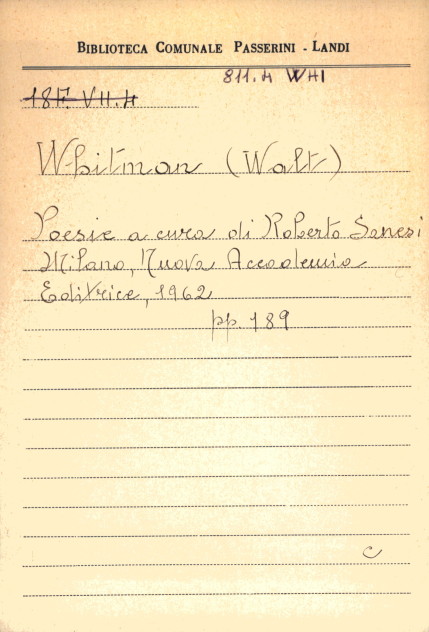 BIBLIOTECA COMUNALE PASSERINI - LANDI
811.4 WHI
18F. VII.4
Whitman (Walt)
Poesie a cura di Roberto Sanesi
Milano, Nuova Accademia
Editrice, 1962
pp. 189
C